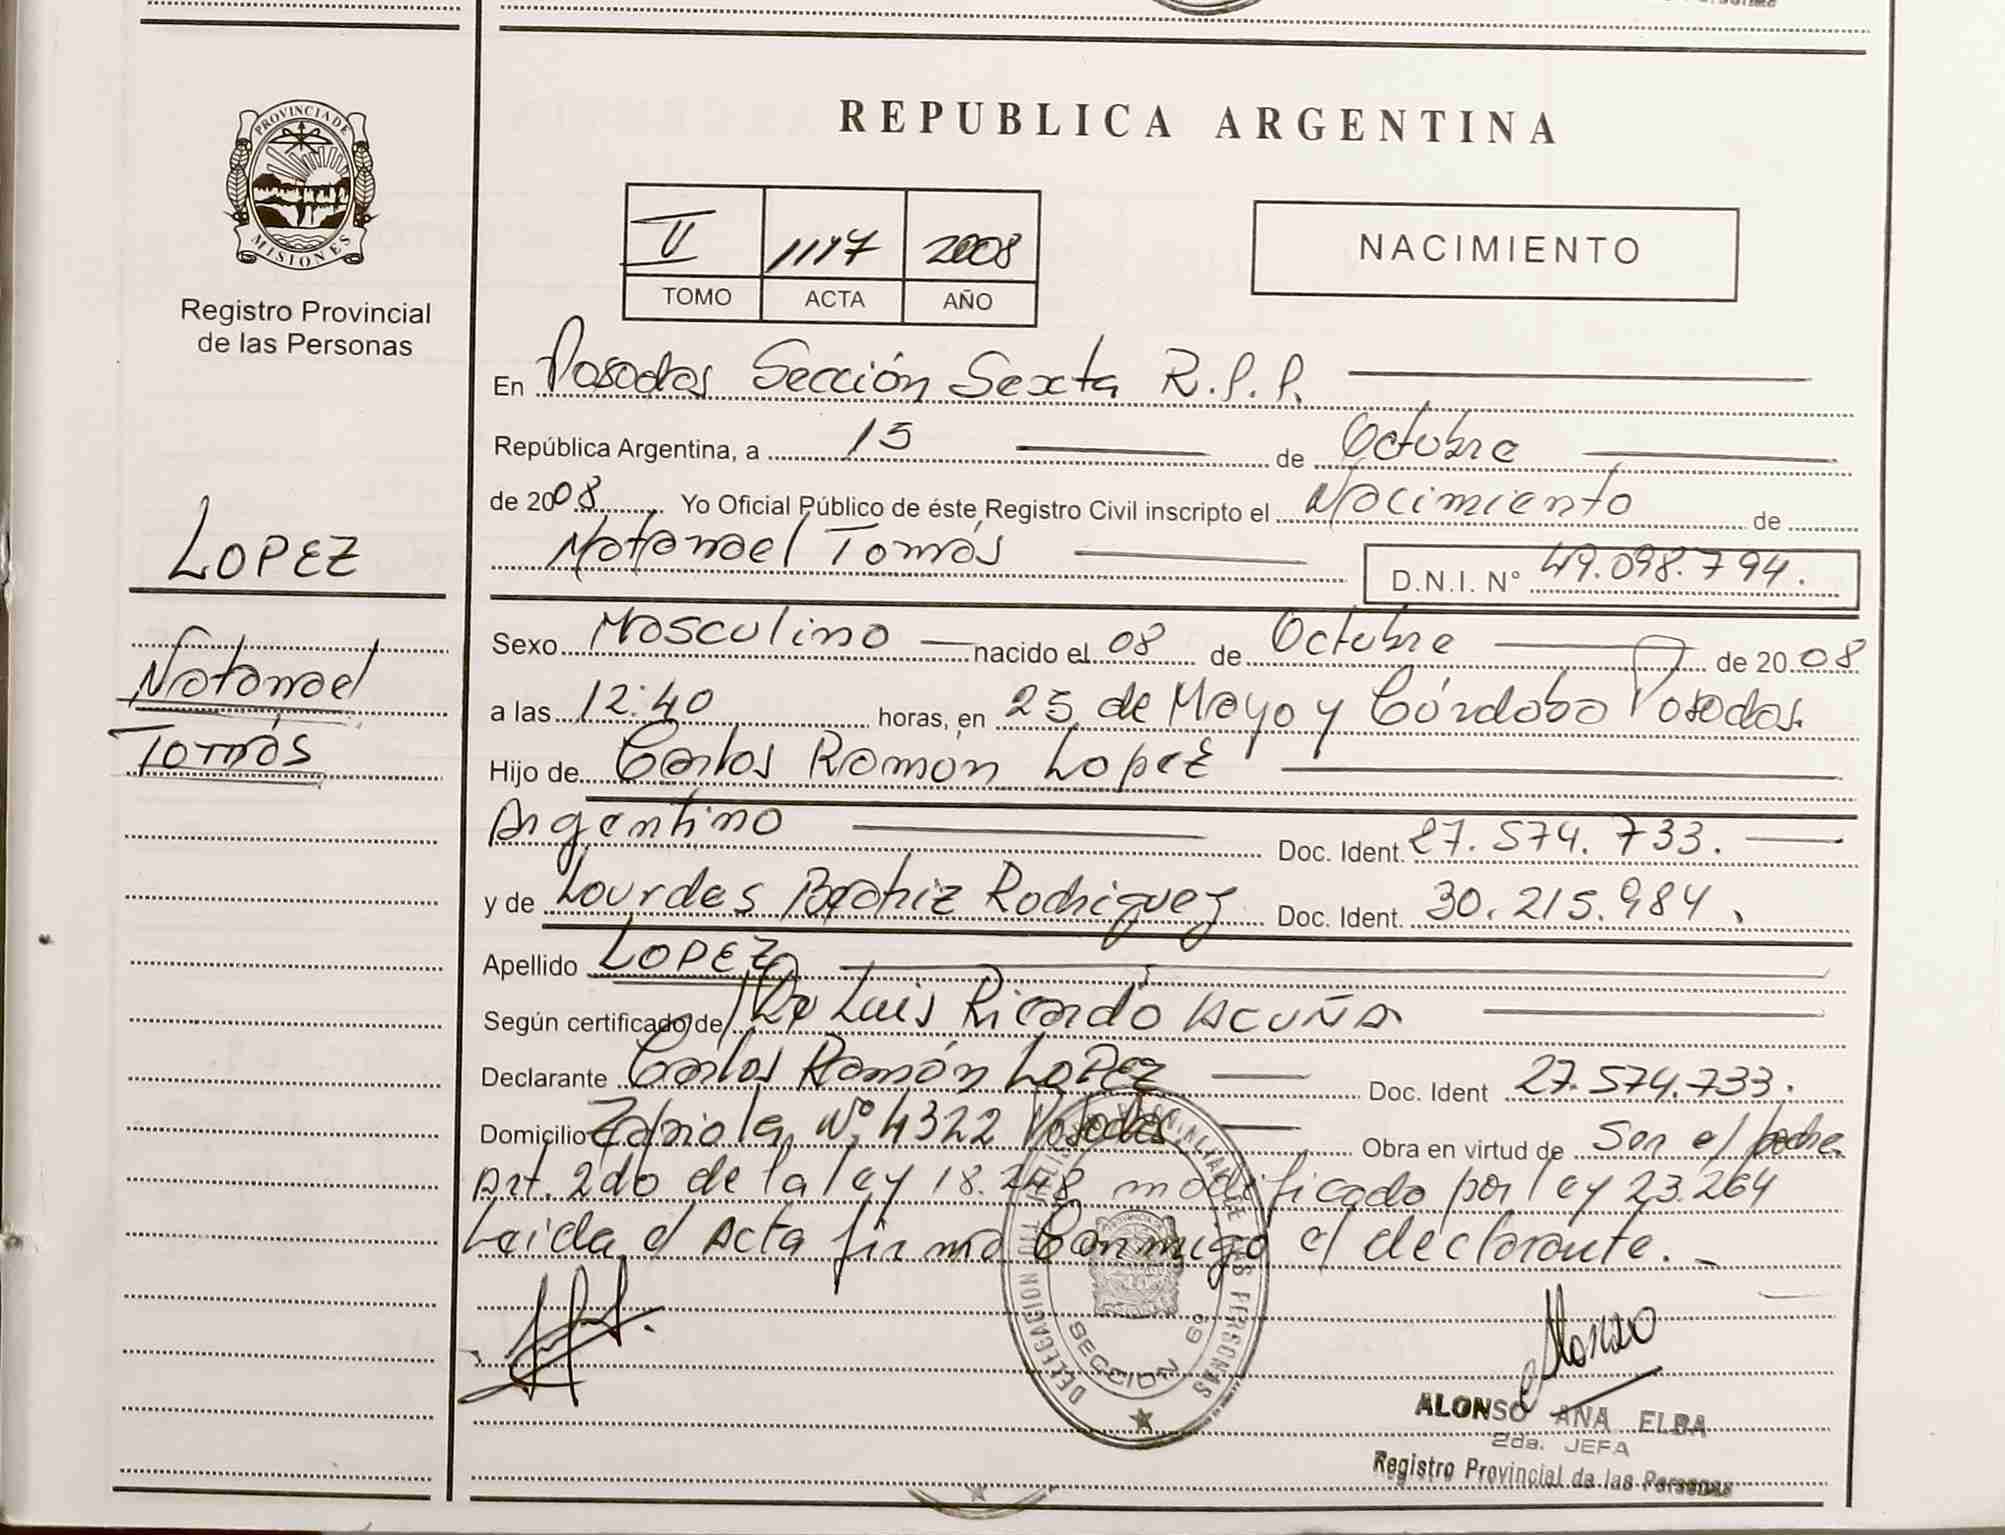 PROVINCIA DE
MISIONES
Registro Provincial
de las Personas
LOPEZ
Natanael
Tomás
REPUBLICA ARGENTINA
II 1117 2008
TOMO ACTA AÑO
NACIMIENTO
En Posadas Sección Sexta R.P.P.
República Argentina, a 15 de Octubre
de 2008 Yo Oficial Público de éste Registro Civil inscripto el Nacimiento de
Natanael Tomás D.N.I. N° 49.098.794.
Sexo Masculino nacido el 08 de Octubre de 2008
a las 12:40 horas, en 25 de Mayo y Córdoba Posadas.
Hijo de Carlos Ramón Lopez
Argentino Doc. Ident. 27.574.733.
y de Lourdes Beatriz Rodriguez Doc. Ident. 30.215.984.
Apellido LOPEZ
Según certificado de Luis Ricardo ACUÑA
Declarante Carlos Ramón LOPEZ Doc. Ident 27.574.733.
Domicilio N° 4322 Posadas Obra en virtud de Ser el padre.
Art. 2do de la ley 18.248 modificado por ley 23.264
Leida el Acta firma Conmigo el declarante.
DELEGACION
DE LAS PERSONAS
SECCION 6ª
Alonso
ALONSO ANA ELBA
2da. JEFA
Registro Provincial de las Personas